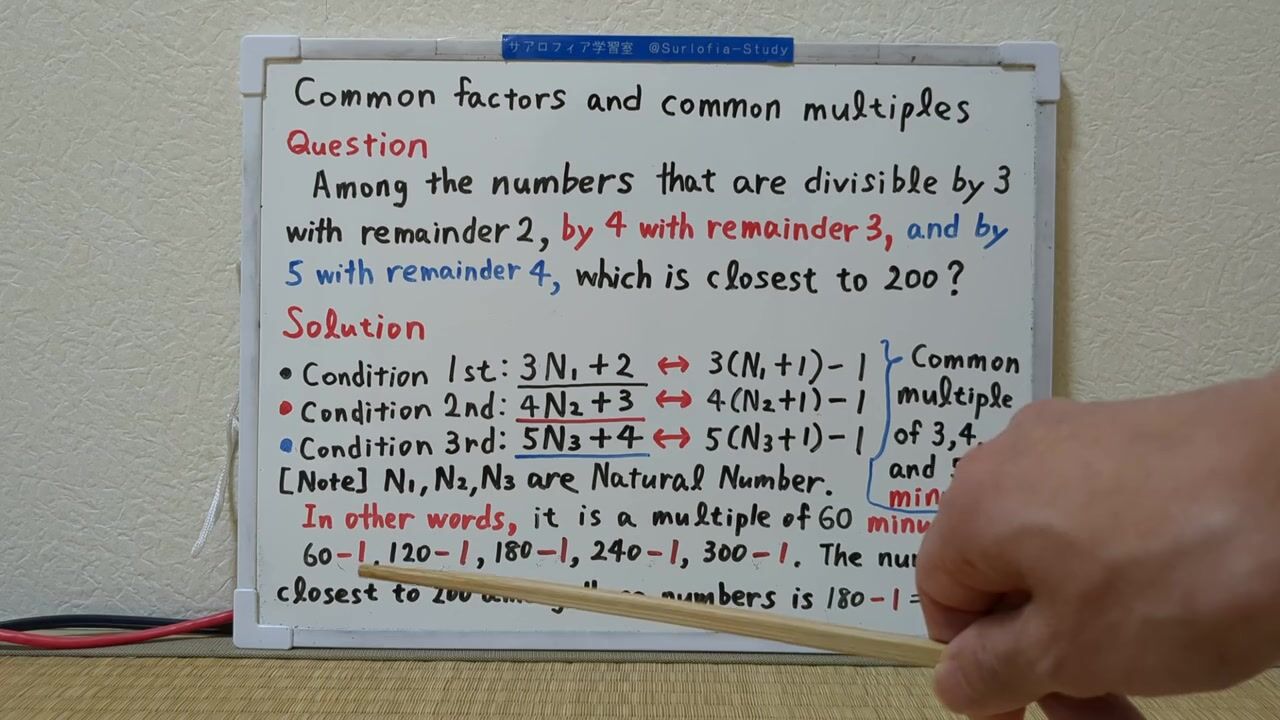 サアロフィア学習室 @Surlofia-Study
Common factors and common multiples
Question
Among the numbers that are divisible by 3
with remainder 2, by 4 with remainder 3, and by
5 with remainder 4, which is closest to 200?
Solution
• Condition 1st: 3N₁+2 ↔ 3(N₁+1)-1
• Condition 2nd: 4N₂+3 ↔ 4(N₂+1)-1
• Condition 3rd: 5N₃+4 ↔ 5(N₃+1)-1
Common
multiple
of 3,4,
and
[Note] N₁,N₂,N₃ are Natural Number.
In other words, it is a multiple of 60
60-1, 120-1, 180-1, 240-1, 300-1. The
closest to 200 numbers is 180-1 =